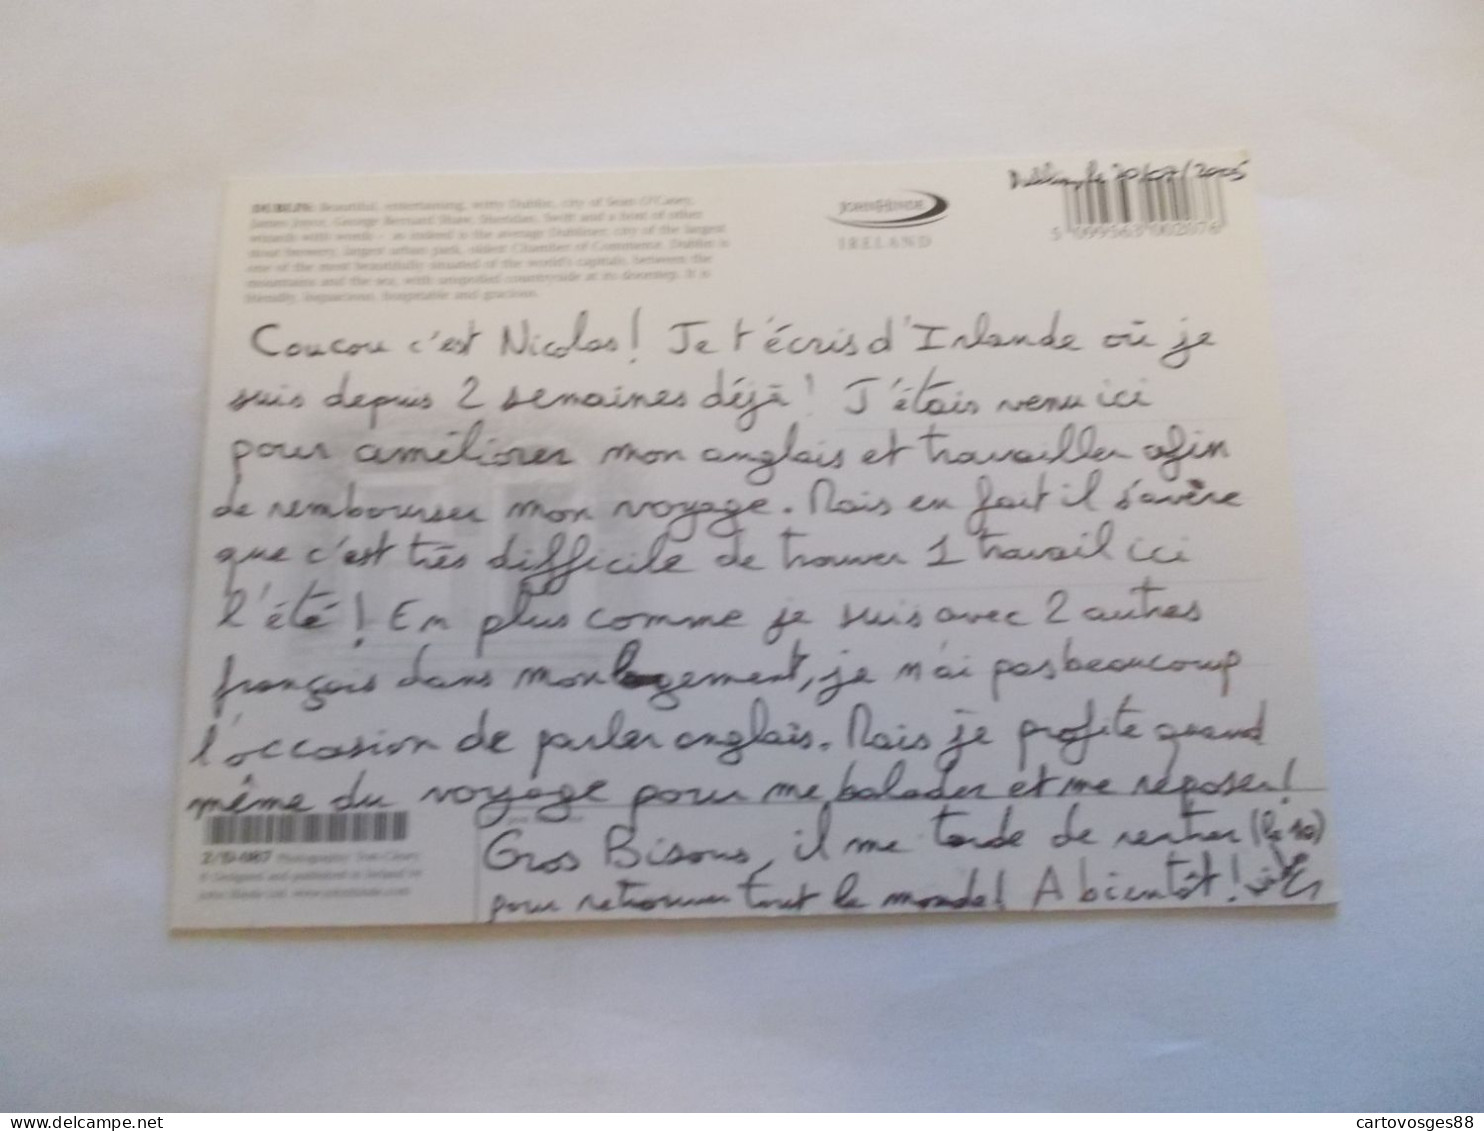 Dublin, le 20/07/2005
DUBLIN: Beautiful, entertaining, witty Dublin, city of Sean O'Casey,
James Joyce, George Bernard Shaw, Sheridan, Swift and a host of other
wizards with words - as indeed is the average Dubliner, city of the largest
stout brewery, largest urban park, oldest Chamber of Commerce. Dublin is
one of the most beautifully situated of the world's capitals, between the
mountains and the sea, with unspoiled countryside at its doorstep. It is
friendly, loquacious, hospitable and gracious.
JOHN HINDE
IRELAND
5 099563 002076
Coucou c'est Nicolas! Je t'écris d'Irlande où je
suis depuis 2 semaines déjà! J'étais venu ici
pour améliorer mon anglais et travailler afin
de rembourser mon voyage. Mais en fait il s'avère
que c'est très difficile de trouver 1 travail ici
l'été! En plus comme je suis avec 2 autres
français dans mon logement, je n'ai pas beaucoup
l'occasion de parler anglais. Mais je profite quand
même du voyage pour me balader et me reposer!
Gros Bisous, il me tarde de rentrer (le 10)
pour retrouver tout le monde! A bientôt!
2/D-087 Photography: Tom
© Designed and published in Ireland by
John Hinde Ltd. www.johnhinde.com
cartovosges88